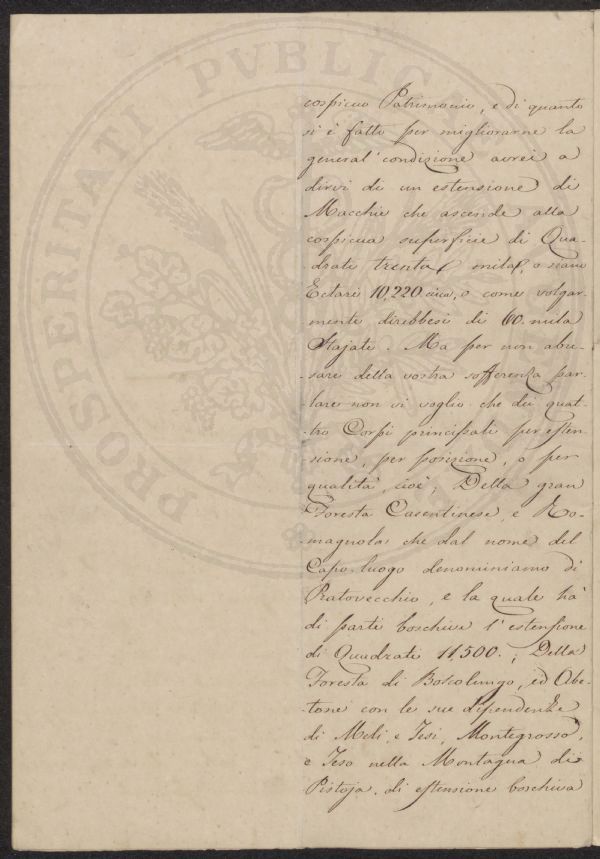 cospicuo Patrimonio, e di quanto
si è fatto per migliorarne la
general' condizione avrei a
dirvi di un estensione di
Macchie che ascende alla
cospicua superficie di Qua-
drati trenta mila, o siano
Ectari 10,220 circa, o come volgar-
mente direbbesi di 60 mila
Stajate. Ma per non abu-
sare della vostra sofferenza par-
lare non vi voglio che dei quat-
tro Corpi principali per esten-
sione, per posizione, o per
qualità, cioè; Della gran
Foresta Casentinese, e Ro-
magnola che dal nome del
Capo-luogo denominiamo di
Pratovecchio, e la quale ha
di parti boschive l'estensione
di Quadrati 11,500.; Della
Foresta di Boscolungo, ed Abe-
tone con le sue dipendenze
di Meli, e Tesi, Montegrosso,
e Teso nella Montagna di
Pistoja. di estensione boschiva
PROSPERITATI PVBLICAE